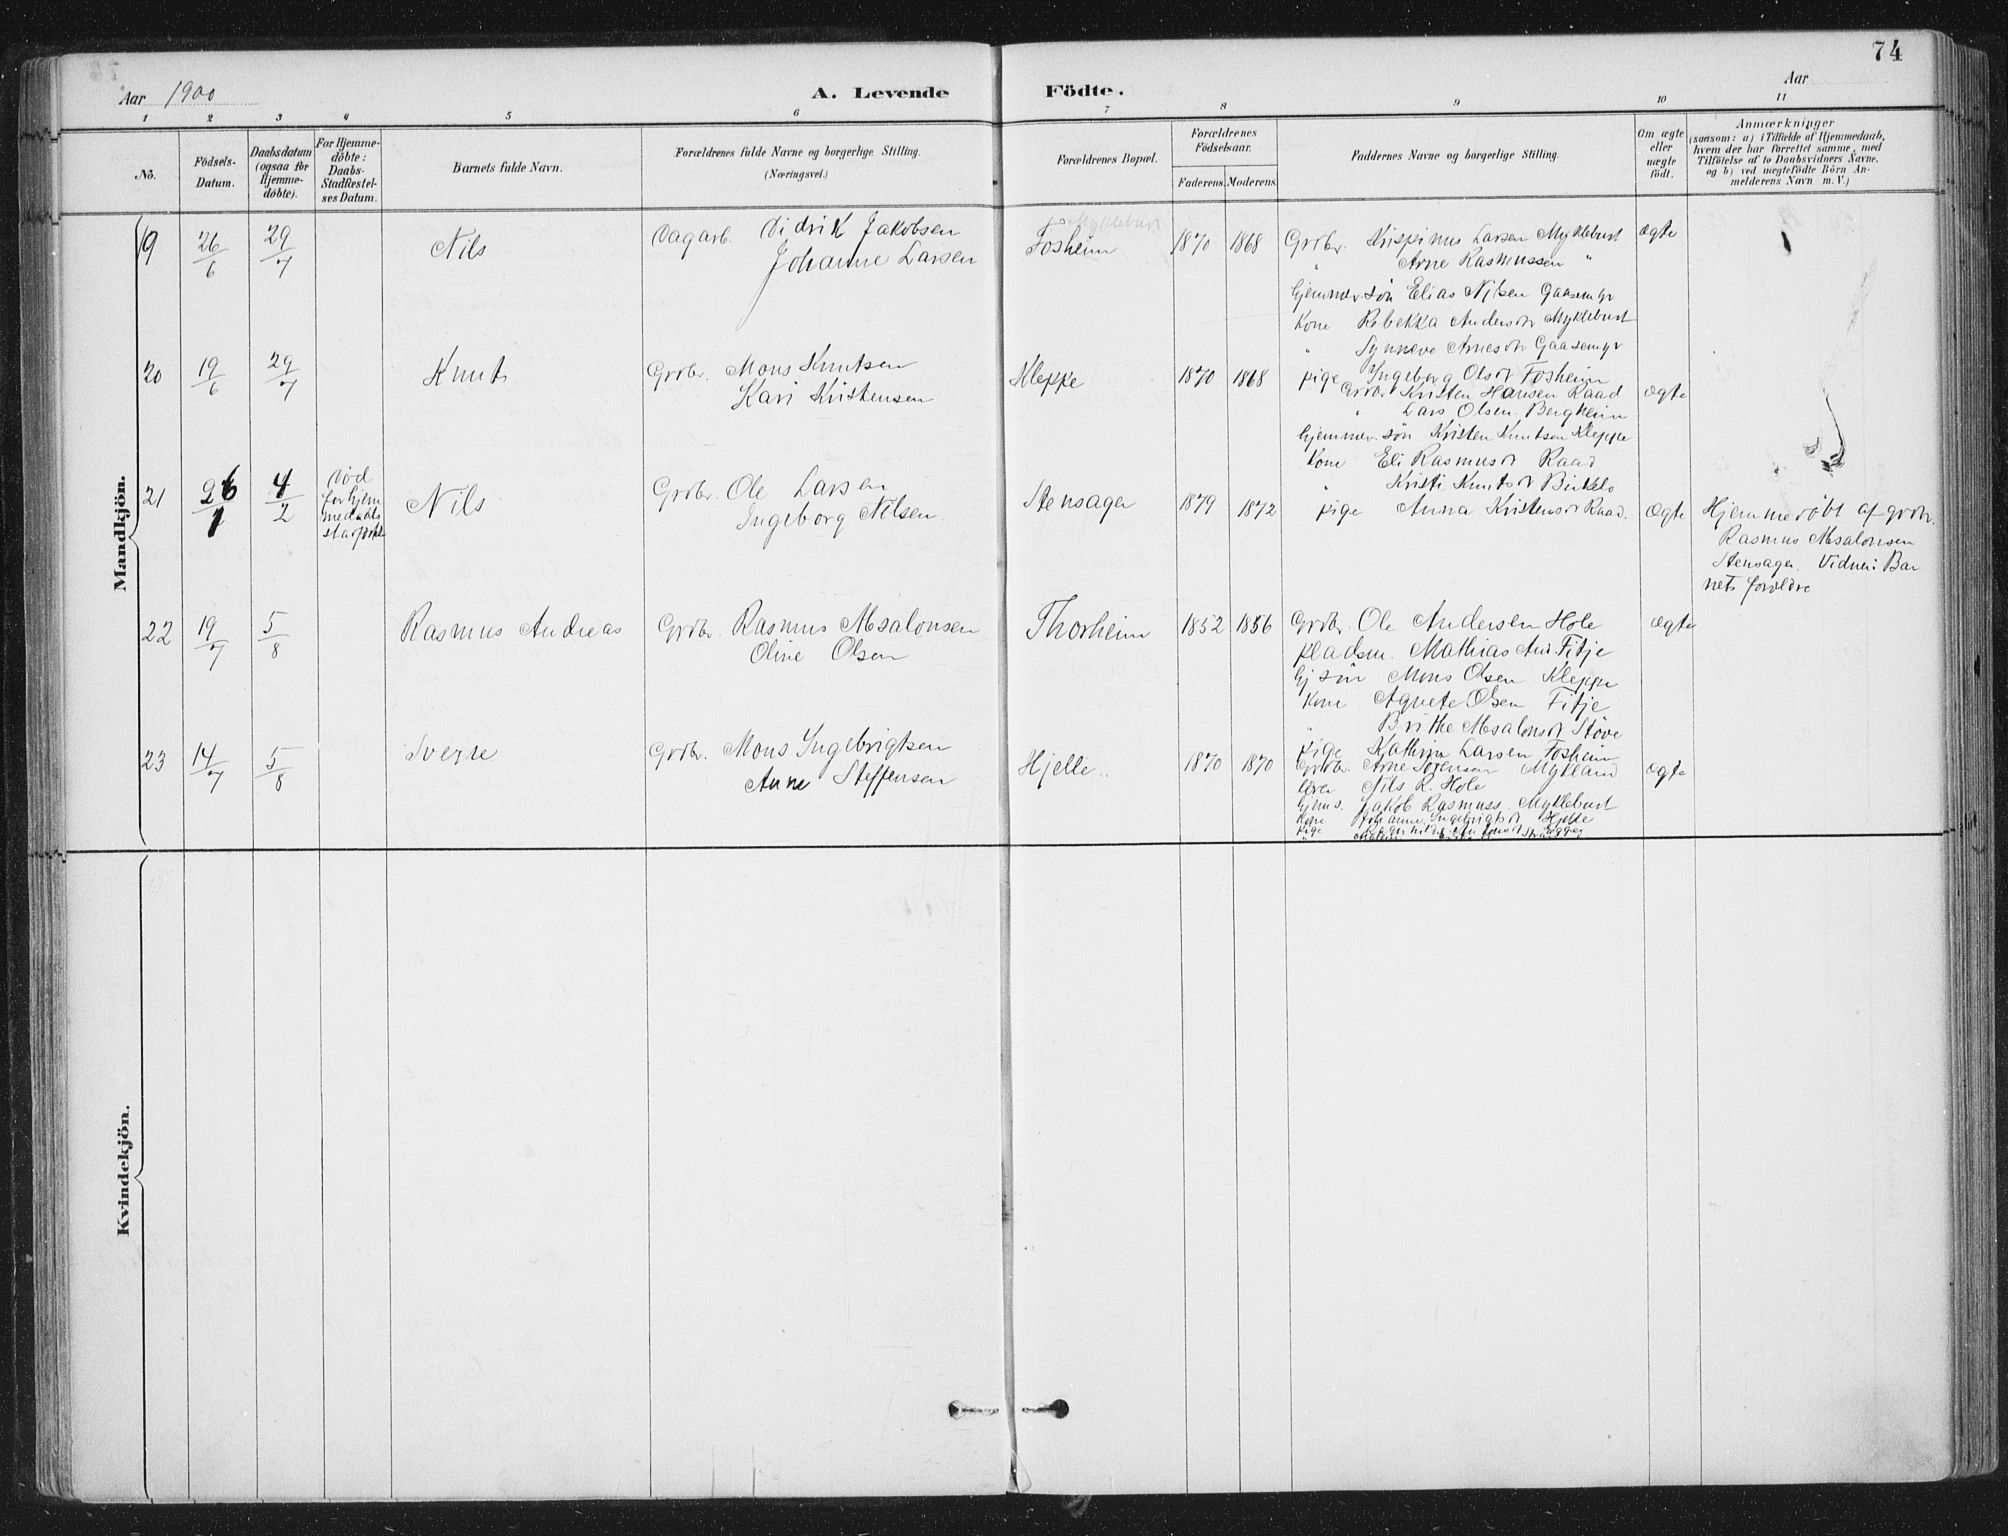 74
Aar 1900
A. Levende Födte.
Aar
1 2 3 4 5 6 7 8 9 10 11
No.
Födsels-Datum.
Daabsdatum (ogsaa for Hjemme-döbte).
For Hjemme-döbte: Daabs-Stadfæstelses Datum.
Barnets fulde Navn.
Forældrenes fulde Navne og borgerlige Stilling.
(Næringsvei.)
Forældrenes Bopæl.
Forældrenes Födselsaar.
Faderens. Moderens.
Faddernes Navne og borgerlige Stilling.
Om ægte eller uægte födt.
Anmærkninger
(saasom: a) i Tilfælde af Hjemmedaab,
hvem der har forrettet samme, med
Tilföielse af to Daabsvidners Navne.
og b) ved uægtefödte Börn An-
melderens Navn m. V.)
Mandkjön.
19 26/6 29/7 Nils Dagarb. Didrik Jakobsen
Johanne Larsen
Myklebust
Fosheim 1870 1868 Grdbr. Krispinus Larsen Myklebust ægte
" Arne Rasmussen "
hjemmev. søn Elias Nilsen Gaasemyr
Kone Rebekka Andersdr Myklebust
" Synneve Arnesdr Gaasemyr
pige Ingeborg Olsdr Fosheim
20 19/6 29/7 Knut Grdbr. Mons Knutsen
Kari Kristensen
Kleppe 1870 1868
Grdbr Kristen Hansen Raad ægte
" Lars Olsen Bergheim
hjemmev. søn Kristen Knutsen Kleppe
Kone Eli Rasmusdr Raad
" Kristi Knutsdr Birkelo
pige Anna Kristensdr Raad.
21 26/1 4/2 død før hjem
medaabs
Nils Grdbr. Ole Larsen
Ingeborg Nilsen
Stensager 1879 1872 ægte
Hjemmedöbt af grdbr.
Rasmus Absalonsen
Stensager. Vidner: Bar
nets forældre
22 19/7 5/8 Rasmus Andreas Grdbr. Rasmus Absalonsen
Oline Olsen
Thorheim 1852 1856 Grdbr. Ole Andersen Hole ægte
pladsm. Mathias And. Fitje
Gj søn Mons Olsen Kleppe
Kone Agnete Olsen Fitje
" Brithe Absalonsdr Støve
pige Kathrine Larsen Fosheim
23 14/7 5/8 Sverre Grdbr. Mons Ingebrigtsen
Anne Steffensen
Hjelle 1870 1870
Grdbr. Arne Sørensen Mykland ægte
lærer Nils R. Hole
hjems. Jakob Rasmuss. Myklebust
Kone Johanne Ingebrigtsdr Hjelle
pige
Kvindekjön.